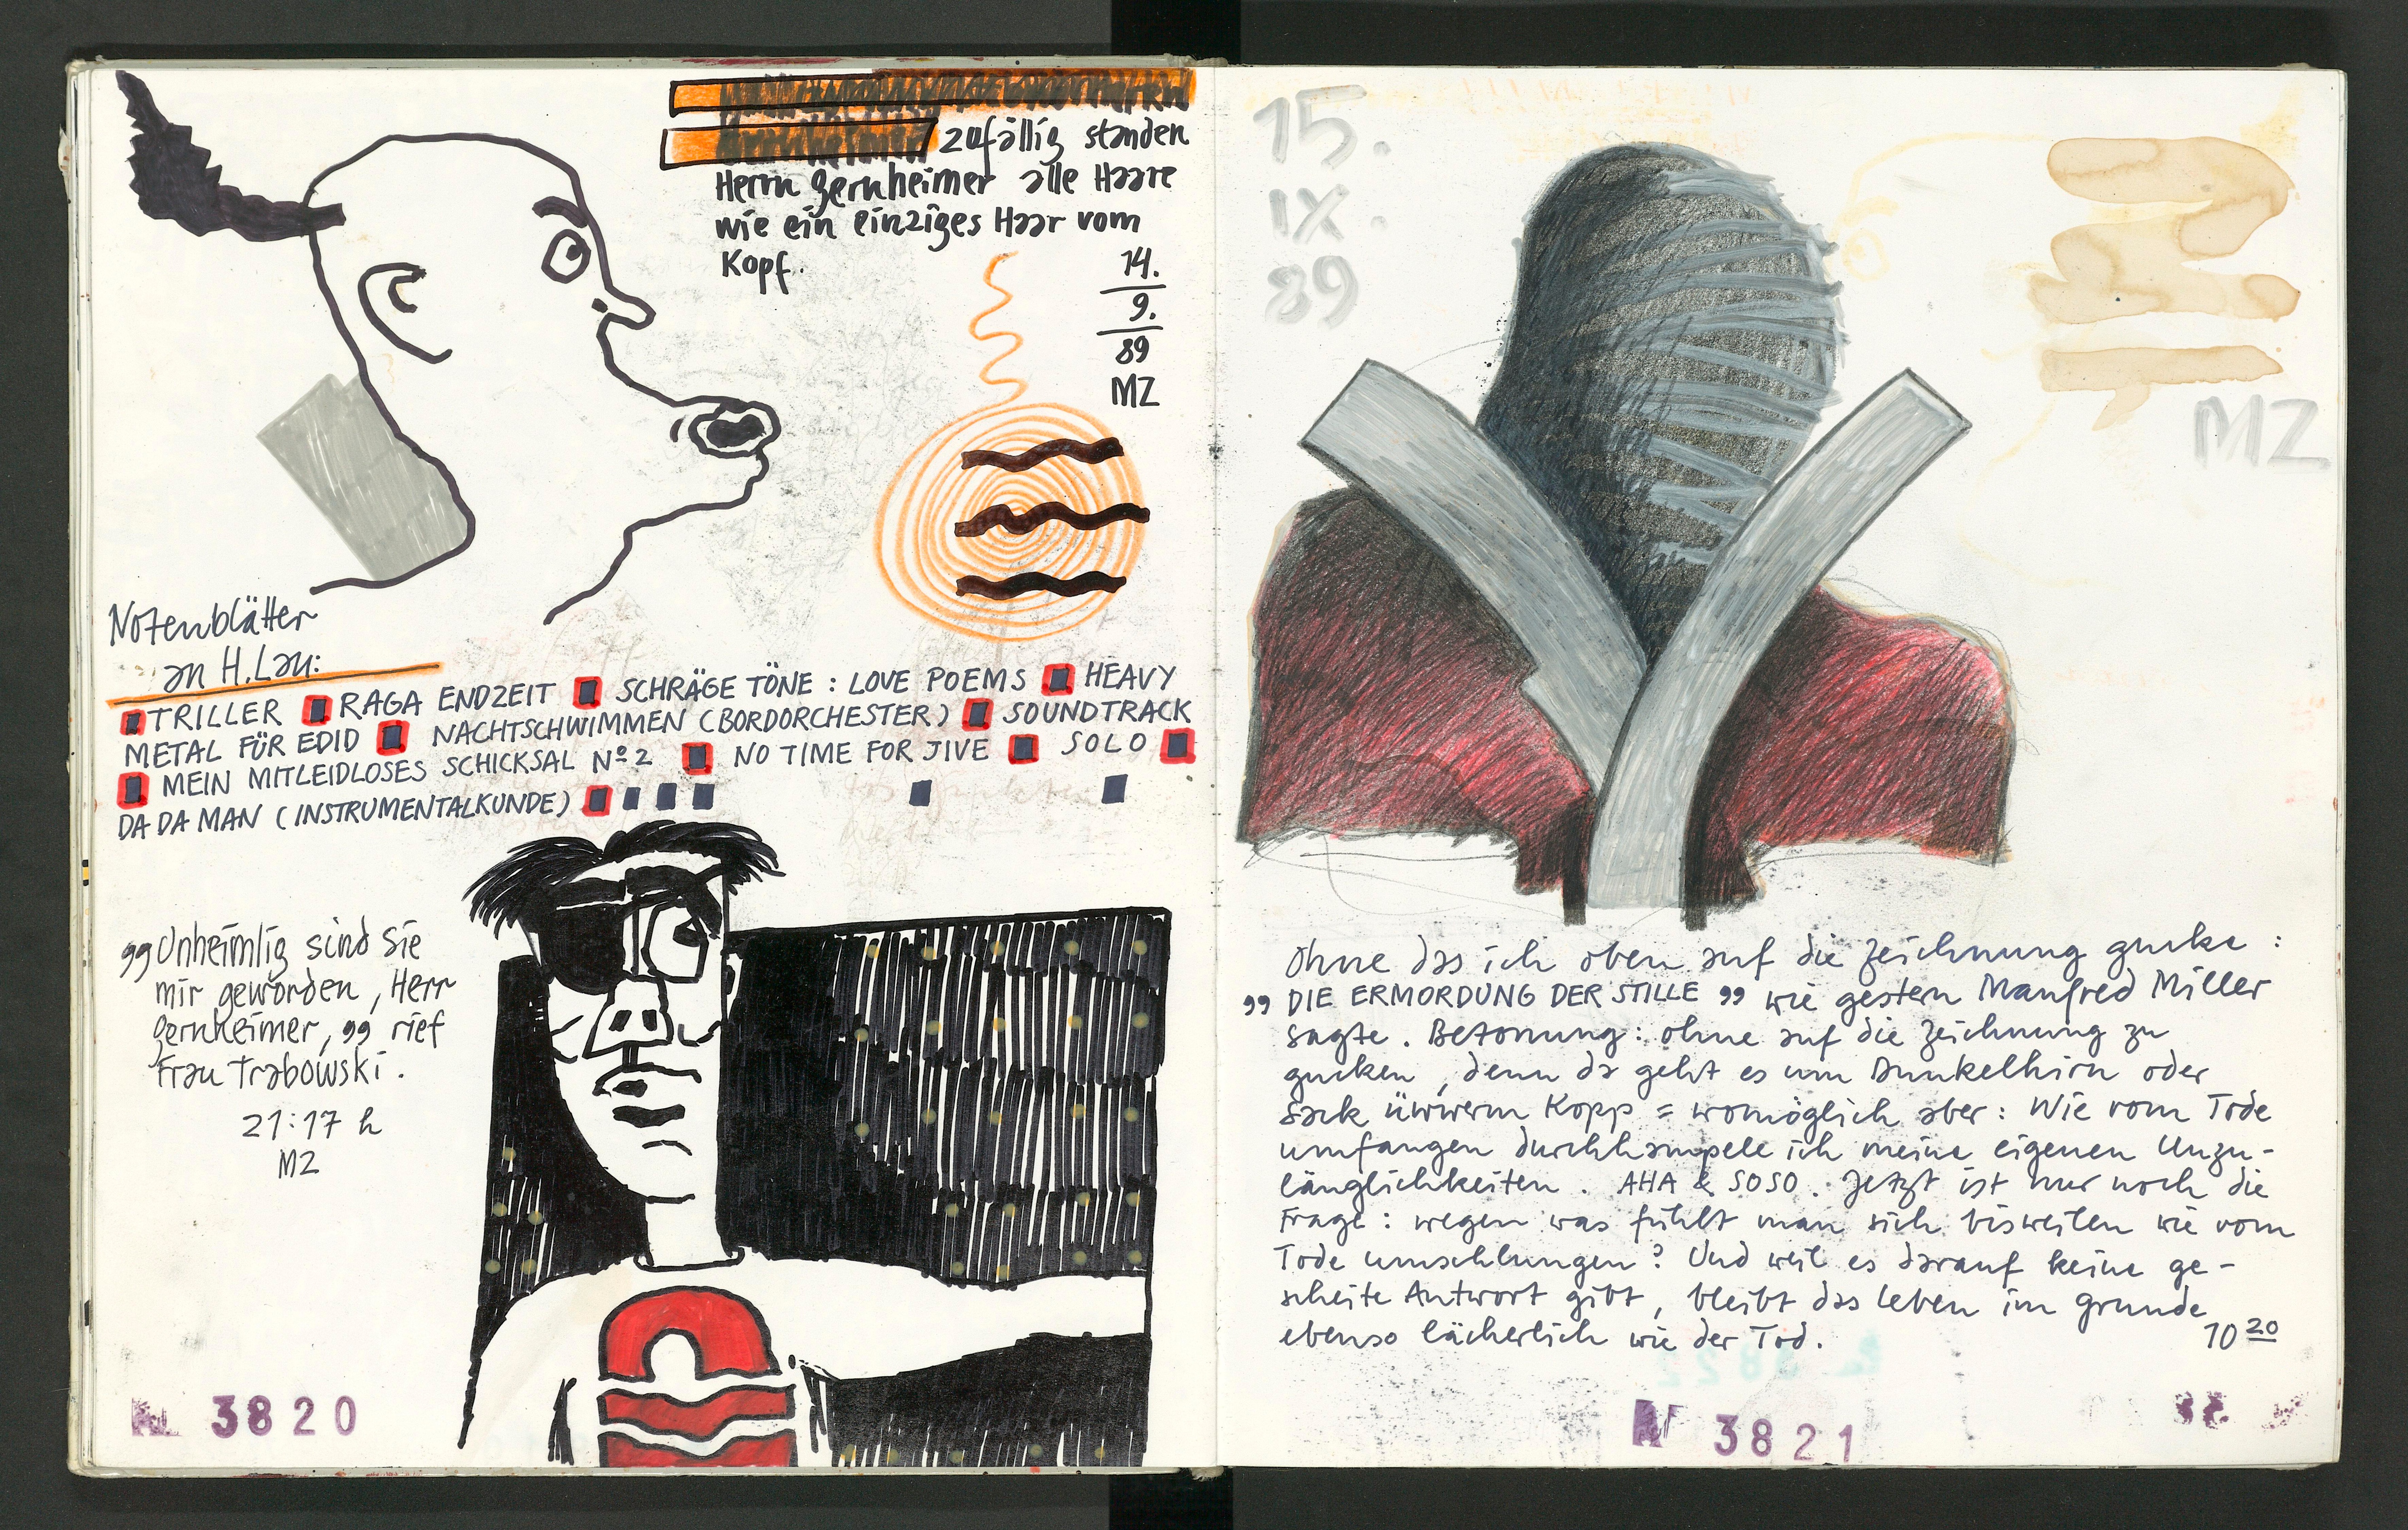 zufällig standen
Herrn Gernheimer alle Haare
wie ein einziges Haar vom
Kopf.
14.
9.
89
MZ
Notenblätter
an H. Lau:
■ TRILLER ■ RAGA ENDZEIT ■ SCHRÄGE TÖNE : LOVE POEMS ■ HEAVY
METAL FÜR EDID ■ NACHTSCHWIMMEN (BORDORCHESTER) ■ SOUNDTRACK
■ MEIN MITLEIDLOSES SCHICKSAL Nº 2 ■ NO TIME FOR JIVE ■ SOLO ■
DADAMAN (INSTRUMENTALKUNDE) ■ ■ ■ ■ ■ ■
„Unheimlig sind Sie
mir geworden, Herr
Gernheimer," rief
Frau Trabowski.
21:17 h
MZ
3820
15.
IX.
89
MZ
Ohne das ich oben auf die Zeichnung gucke :
„DIE ERMORDUNG DER STILLE" wie gestern Manfred Miller
sagte. Betonung: ohne auf die Zeichnung zu
gucken, denn da geht es um Dunkelhirn oder
Sack üwwerm Kopp = womöglich aber: Wie vom Tode
umfangen durchhampele ich meine eigenen Unzu-
länglichkeiten. AHA & SOSO. Jetzt ist nur noch die
Frage: wegen was fühlt man sich bisweilen wie vom
Tode umschlungen? Und weil es darauf keine ge-
scheite Antwort gibt, bleibt das Leben im Grunde
ebenso lächerlich wie der Tod.
10 20
N 3821